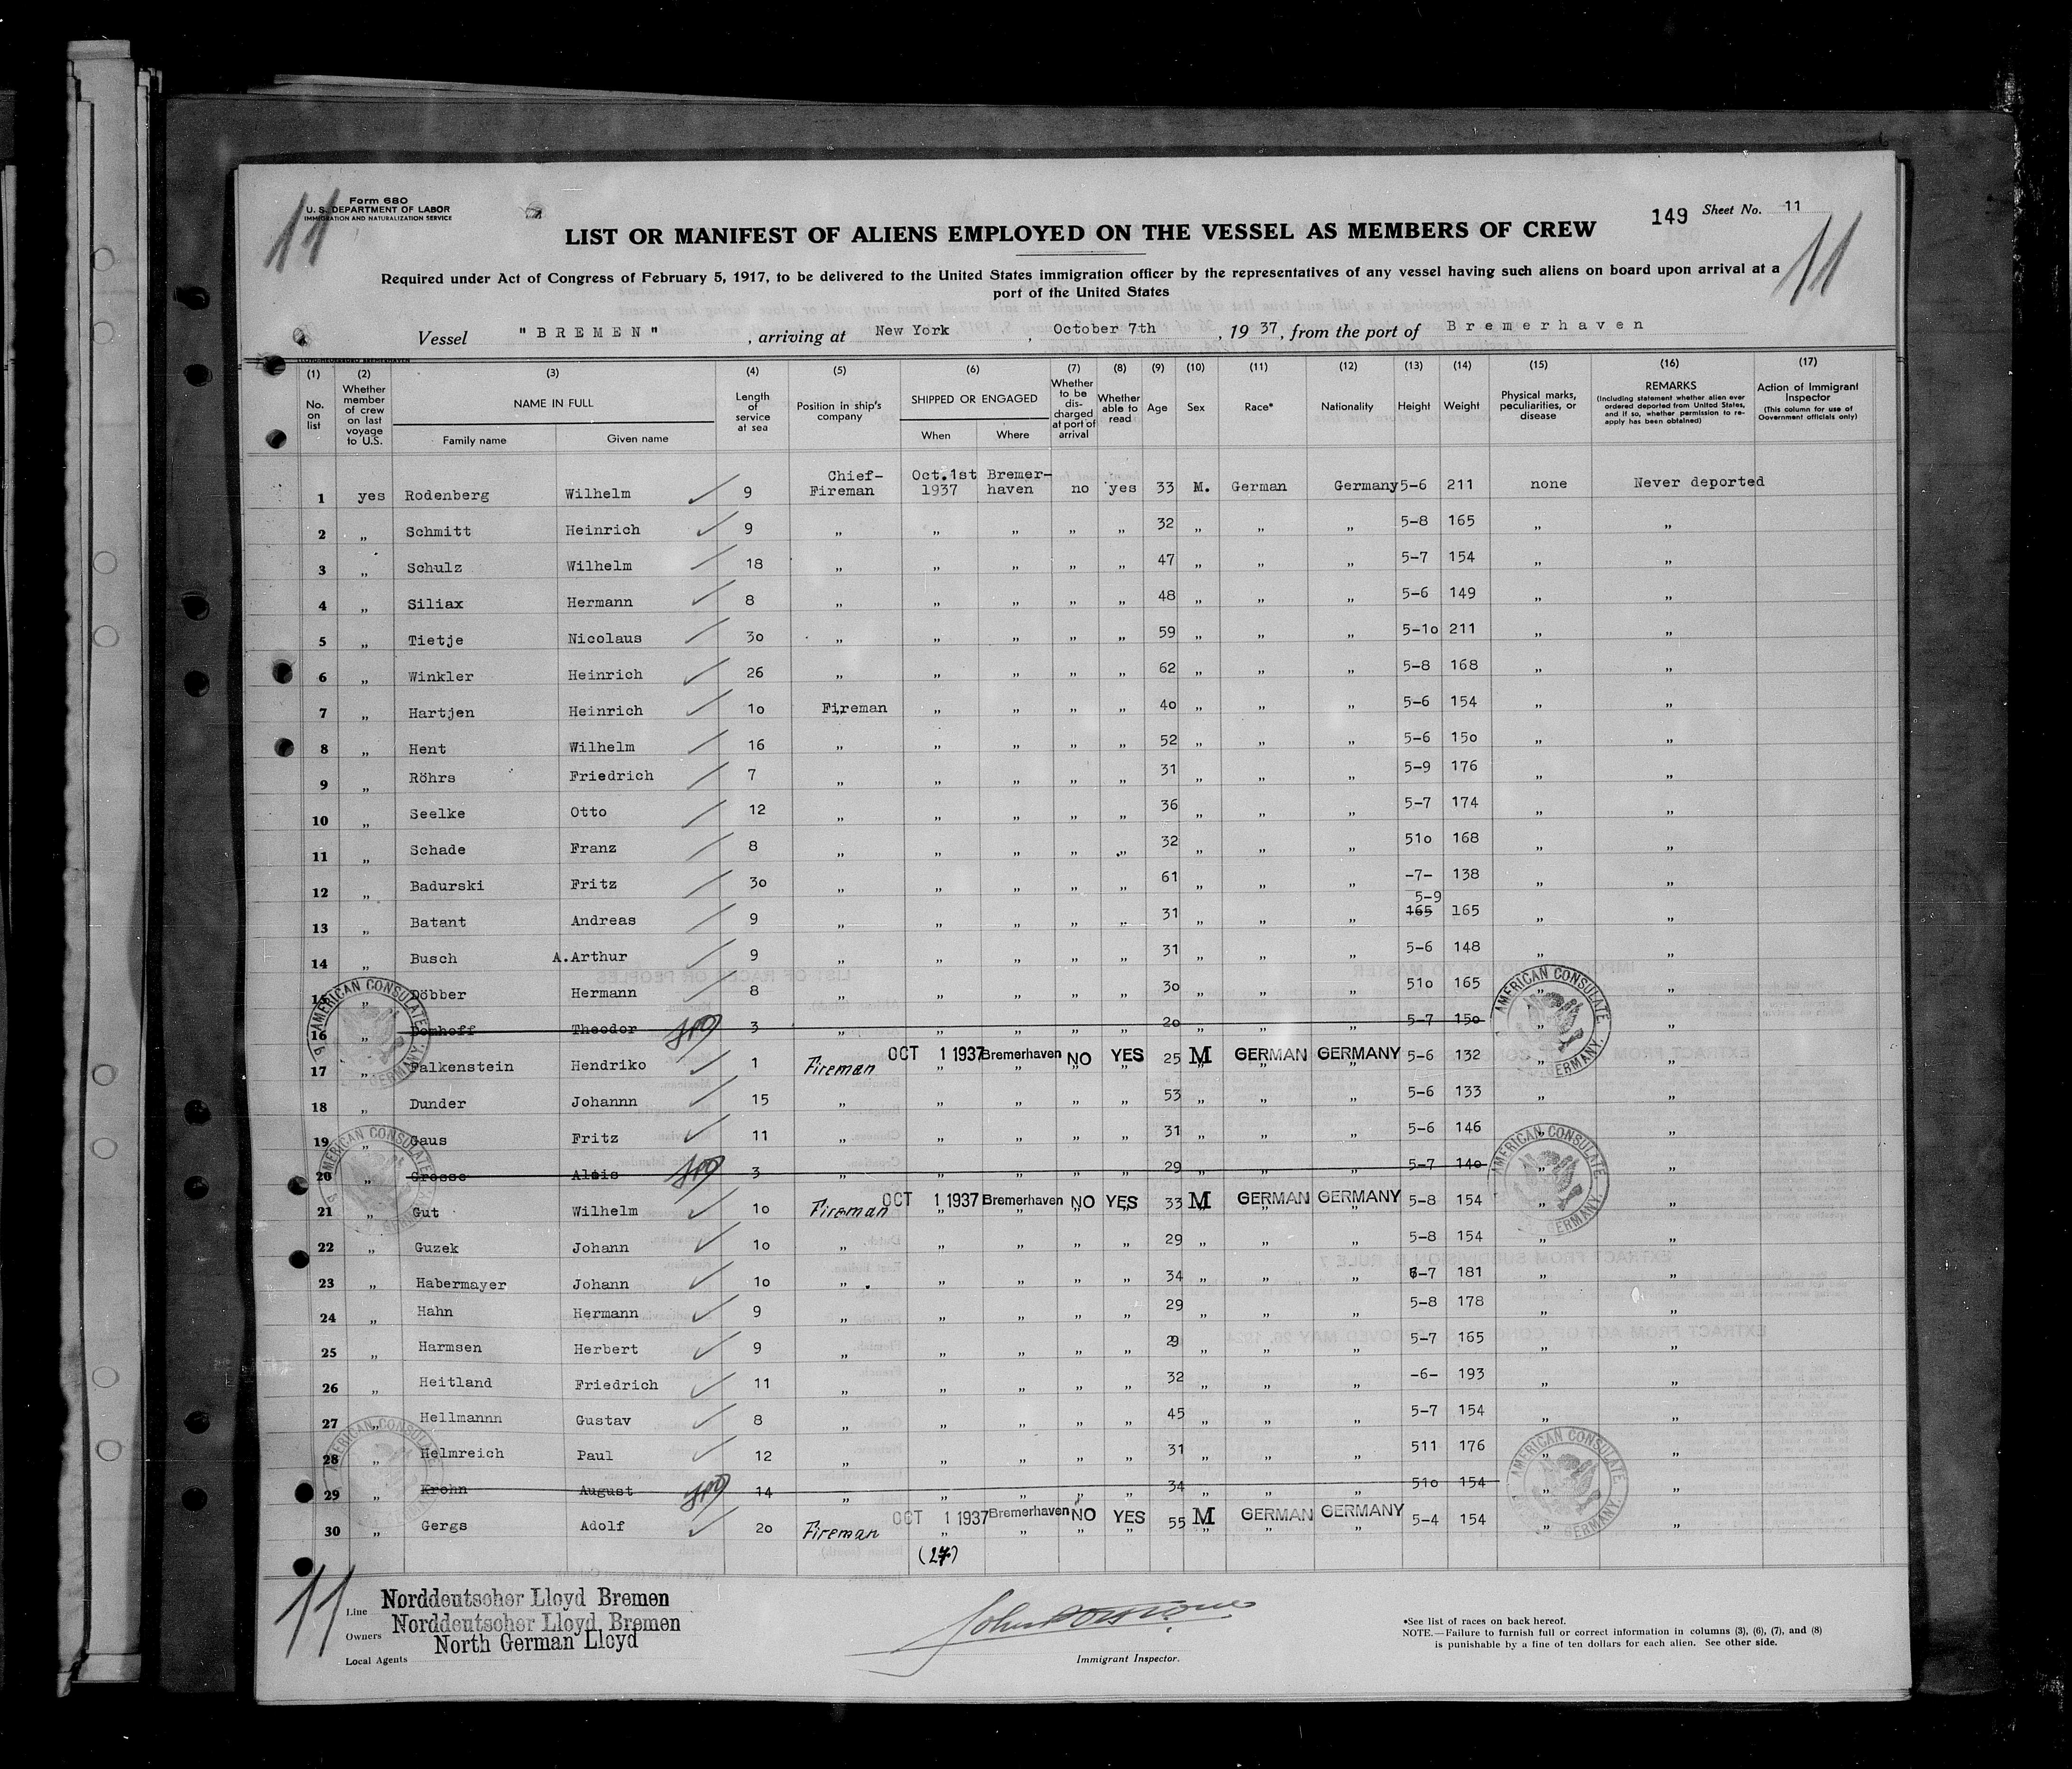 Form 680
U. S. DEPARTMENT OF LABOR
IMMIGRATION AND NATURALIZATION SERVICE
11
149 Sheet No. 11
11
LIST OR MANIFEST OF ALIENS EMPLOYED ON THE VESSEL AS MEMBERS OF CREW
Required under Act of Congress of February 5, 1917, to be delivered to the United States immigration officer by the representatives of any vessel having such aliens on board upon arrival at a
port of the United States
Vessel "BREMEN", arriving at New York, October 7th, 1937, from the port of Bremerhaven
(1) (2) (3) (4) (5) (6) (7) (8) (9) (10) (11) (12) (13) (14) (15) (16) (17)
No. on list
Whether member of crew on last voyage to U.S.
NAME IN FULL
Family name Given name
Length of service at sea
Position in ship's company
SHIPPED OR ENGAGED
When Where
Whether to be discharged at port of arrival
Whether able to read
Age
Sex
Race*
Nationality
Height
Weight
Physical marks, peculiarities, or disease
REMARKS
(Including statement whether alien ever ordered deported from United States, and if so, whether permission to re-apply has been obtained)
Action of Immigrant Inspector
(This column for use of Government officials only)
1 yes Rodenberg Wilhelm 9 Chief-Fireman Oct.1st 1937 Bremer-haven no yes 33 M. German Germany 5-6 211 none Never deported
2 „ Schmitt Heinrich 9 „ „ „ „ „ 32 „ „ „ 5-8 165 „ „
3 „ Schulz Wilhelm 18 „ „ „ „ „ 47 „ „ „ 5-7 154 „ „
4 „ Siliax Hermann 8 „ „ „ „ „ 48 „ „ „ 5-6 149 „ „
5 „ Tietje Nicolaus 3o „ „ „ „ „ 59 „ „ „ 5-1o 211 „ „
6 „ Winkler Heinrich 26 „ „ „ „ „ 62 „ „ „ 5-8 168 „ „
7 „ Hartjen Heinrich 1o Fireman „ „ „ „ 4o „ „ „ 5-6 154 „ „
8 „ Hent Wilhelm 16 „ „ „ „ „ 52 „ „ „ 5-6 15o „ „
9 „ Röhrs Friedrich 7 „ „ „ „ „ 31 „ „ „ 5-9 176 „ „
10 „ Seelke Otto 12 „ „ „ „ „ 36 „ „ „ 5-7 174 „ „
11 „ Schade Franz 8 „ „ „ „ „ 32 „ „ „ 51o 168 „ „
12 „ Badurski Fritz 3o „ „ „ „ „ 61 „ „ „ -7- 138 „ „
13 „ Batant Andreas 9 „ „ „ „ „ 31 „ „ „ 165 5-9 165 „ „
14 „ Busch A.Arthur 9 „ „ „ „ „ 31 „ „ „ 5-6 148 „ „
15 „ Döbber Hermann 8 „ „ „ „ „ 3o „ „ „ 51o 165 „ „
16 „ Domhoff Theodor 3 „ „ „ „ „ 2o „ „ „ 5-7 15o „ „
17 „ Falkenstein Hendriko 1 Fireman OCT 1 1937 Bremerhaven NO YES 25 M GERMAN GERMANY 5-6 132 „ „
18 „ Dunder Johannn 15 „ „ „ „ „ 53 „ „ „ 5-6 133 „ „
19 „ Gaus Fritz 11 „ „ „ „ „ 31 „ „ „ 5-6 146 „ „
20 „ Grosse Alois 3 „ „ „ „ „ 29 „ „ „ 5-7 14o „ „
21 „ Gut Wilhelm 1o Fireman OCT 1 1937 Bremerhaven NO YES 33 M GERMAN GERMANY 5-8 154 „ „
22 „ Guzek Johann 1o „ „ „ „ „ 29 „ „ „ 5-8 154 „ „
23 „ Habermayer Johann 1o „ „ „ „ „ 34 „ „ „ 6-7 181 „ „
24 „ Hahn Hermann 9 „ „ „ „ „ 29 „ „ „ 5-8 178 „ „
25 „ Harmsen Herbert 9 „ „ „ „ „ 29 „ „ „ 5-7 165 „ „
26 „ Heitland Friedrich 11 „ „ „ „ „ 32 „ „ „ -6- 193 „ „
27 „ Hellmannn Gustav 8 „ „ „ „ „ 45 „ „ „ 5-7 154 „ „
28 „ Helmreich Paul 12 „ „ „ „ „ 31 „ „ „ 511 176 „ „
29 „ Krohn August 14 „ „ „ „ „ 34 „ „ „ 51o 154 „ „
30 „ Gergs Adolf 2o Fireman OCT 1 1937 Bremerhaven NO YES 55 M GERMAN GERMANY 5-4 154 „ „
(27)
AMERICAN CONSULATE GERMANY.
AMERICAN CONSULATE GERMANY.
AMERICAN CONSULATE GERMANY.
AMERICAN CONSULATE GERMANY.
AMERICAN CONSULATE GERMANY.
AMERICAN CONSULATE GERMANY.
11
Line Norddeutscher Lloyd Bremen
Owners Norddeutscher Lloyd Bremen
Local Agents North German Lloyd
Immigrant Inspector.
*See list of races on back hereof.
NOTE.—Failure to furnish full or correct information in columns (3), (6), (7), and (8)
is punishable by a fine of ten dollars for each alien. See other side.